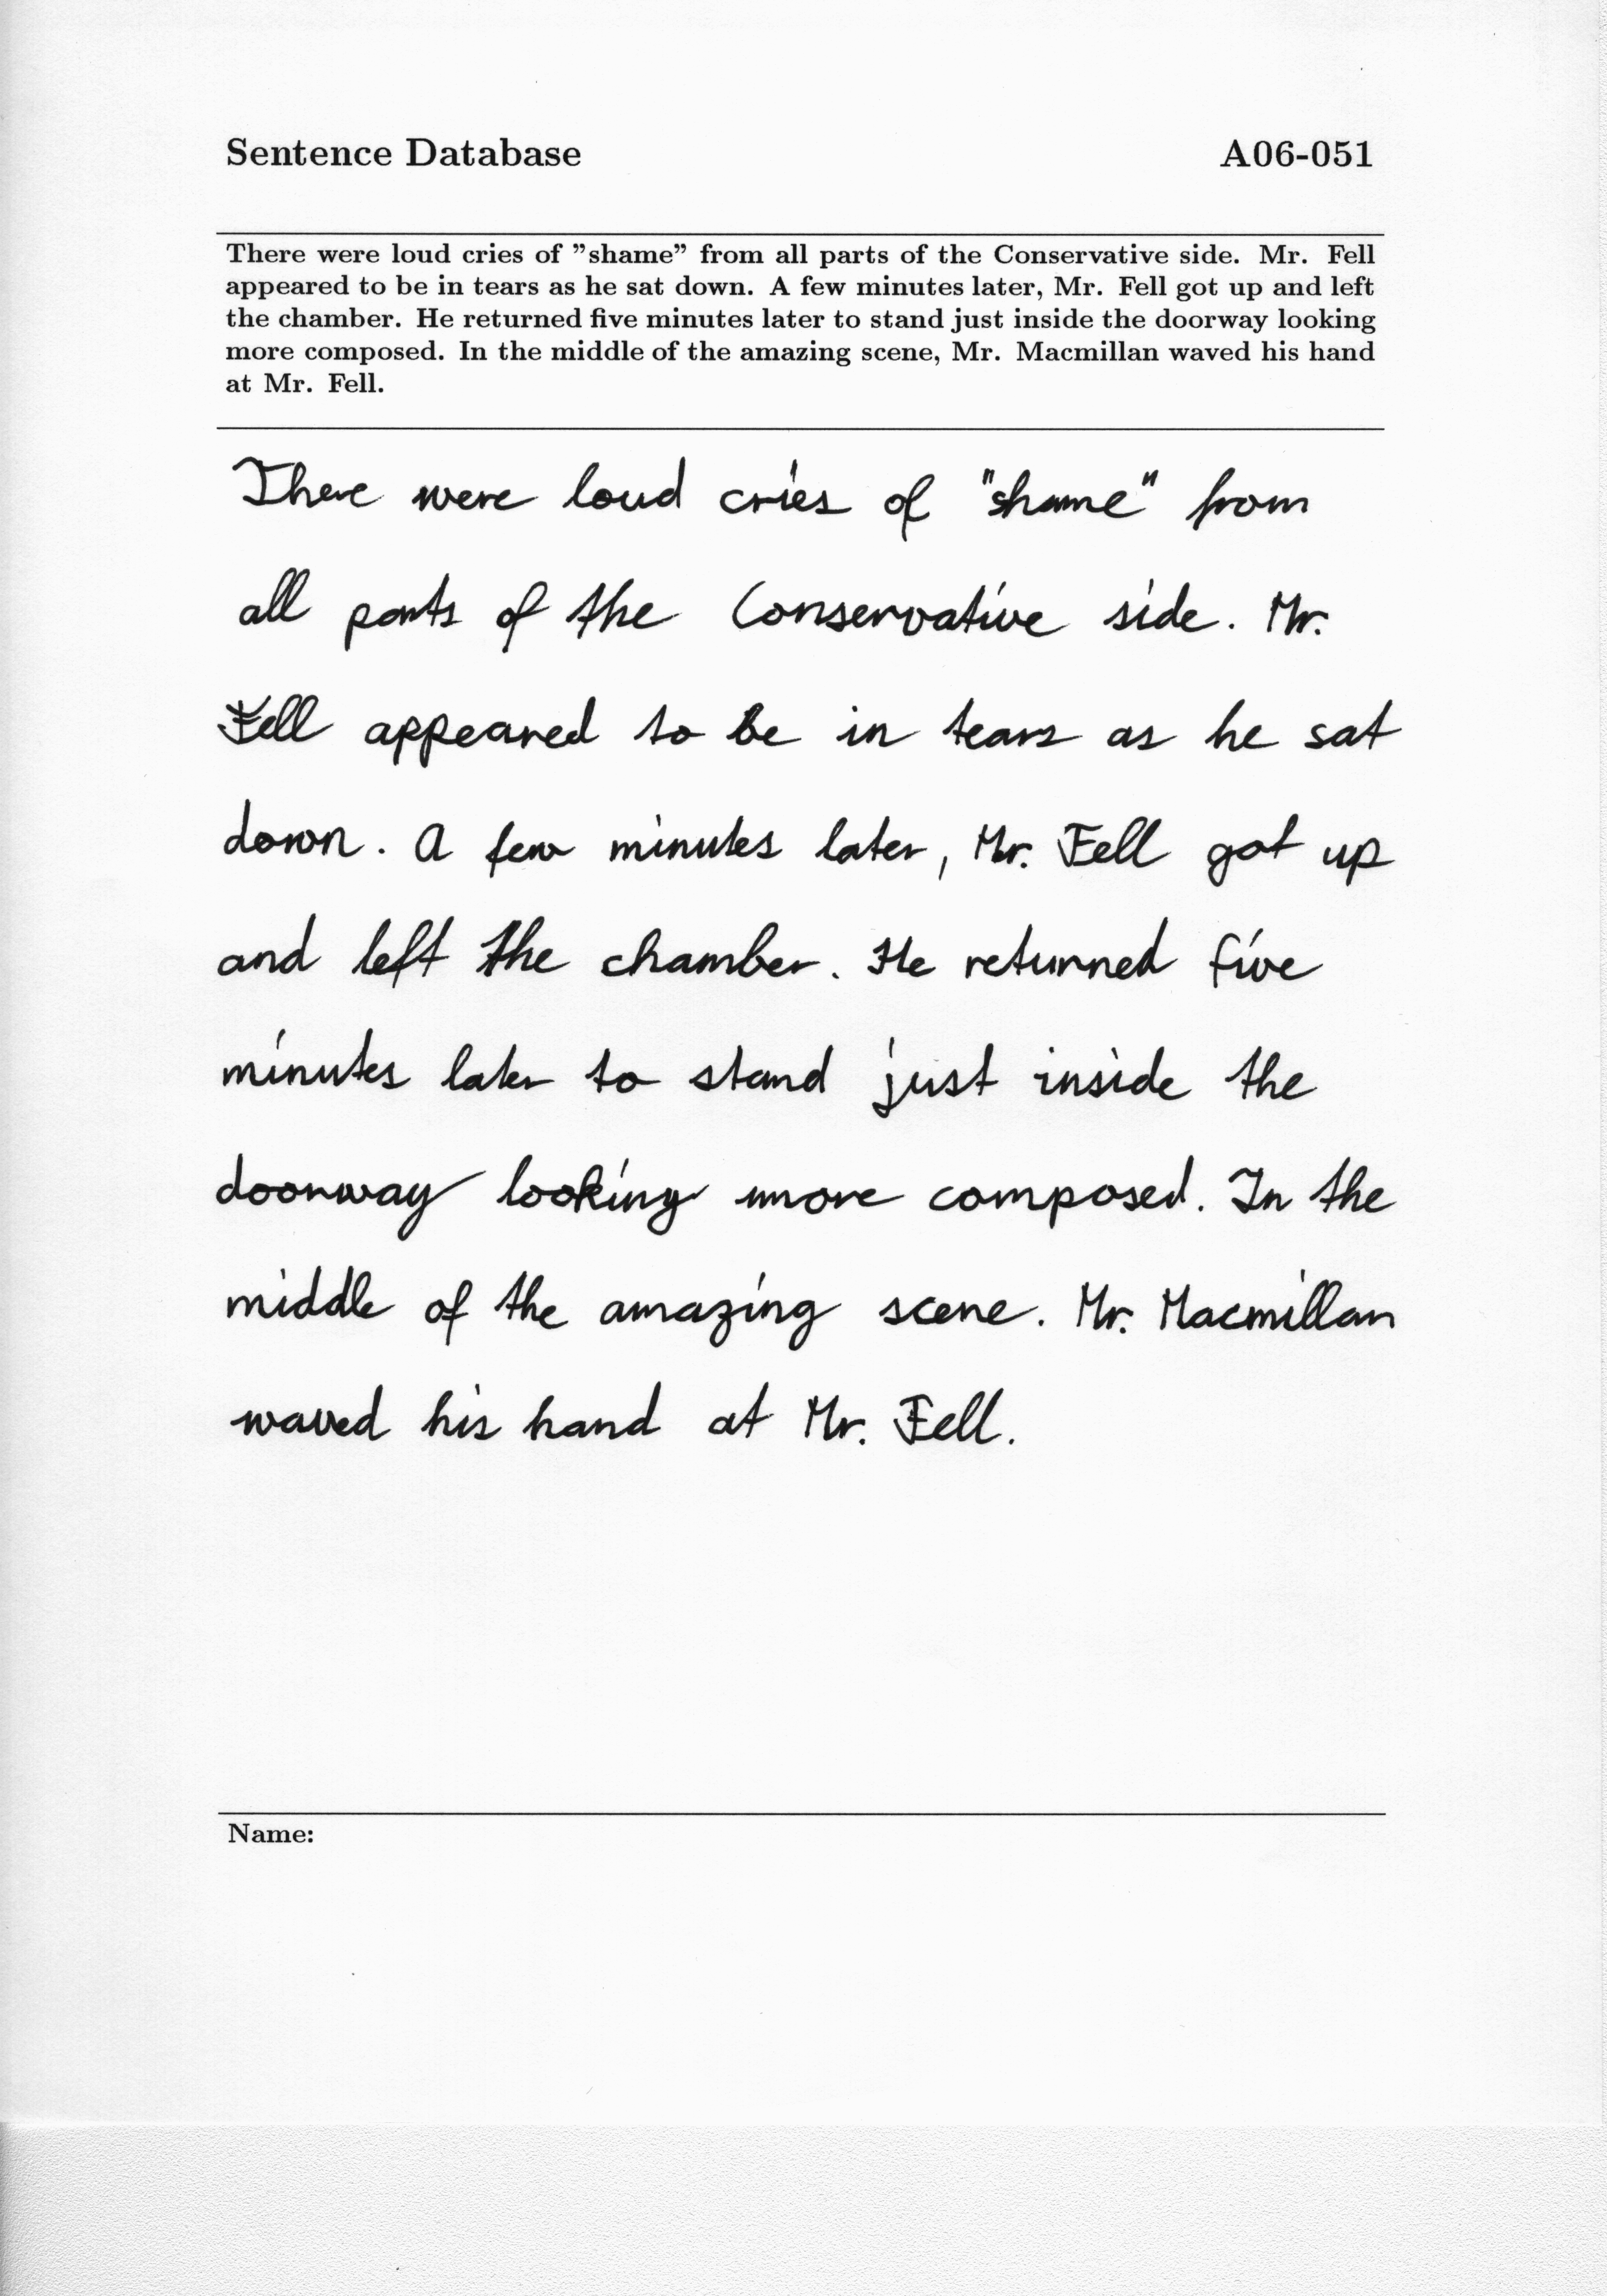 Sentence Database A06-051
There were loud cries of ”shame” from all parts of the Conservative side. Mr. Fell
appeared to be in tears as he sat down. A few minutes later, Mr. Fell got up and left
the chamber. He returned five minutes later to stand just inside the doorway looking
more composed. In the middle of the amazing scene, Mr. Macmillan waved his hand
at Mr. Fell.
There were loud cries of "shame" from
all parts of the Conservative side. Mr.
Fell appeared to be in tears as he sat
down. A few minutes later, Mr. Fell got up
and left the chamber. He returned five
minutes later to stand just inside the
doorway looking more composed. In the
middle of the amazing scene. Mr. Macmillan
waved his hand at Mr. Fell.
Name: